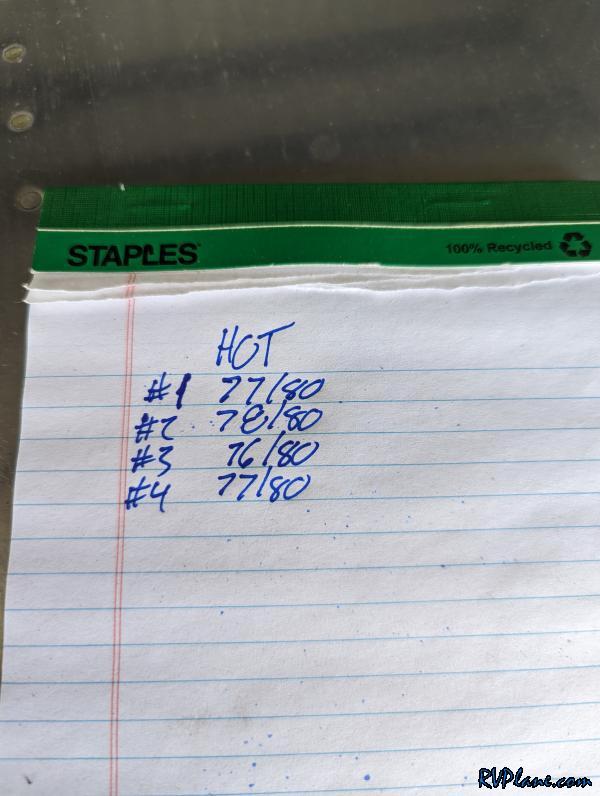 STAPLES
100% Recycled
HOT
#1 77/80
#2 78/80
#3 76/80
#4 77/80
RVPlane.com